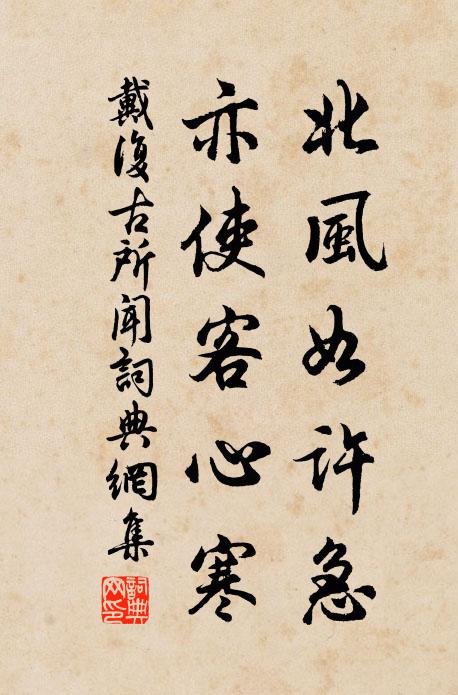 北風如許急
亦使客心寒
戴復古所聞詞典網集
詞典網印